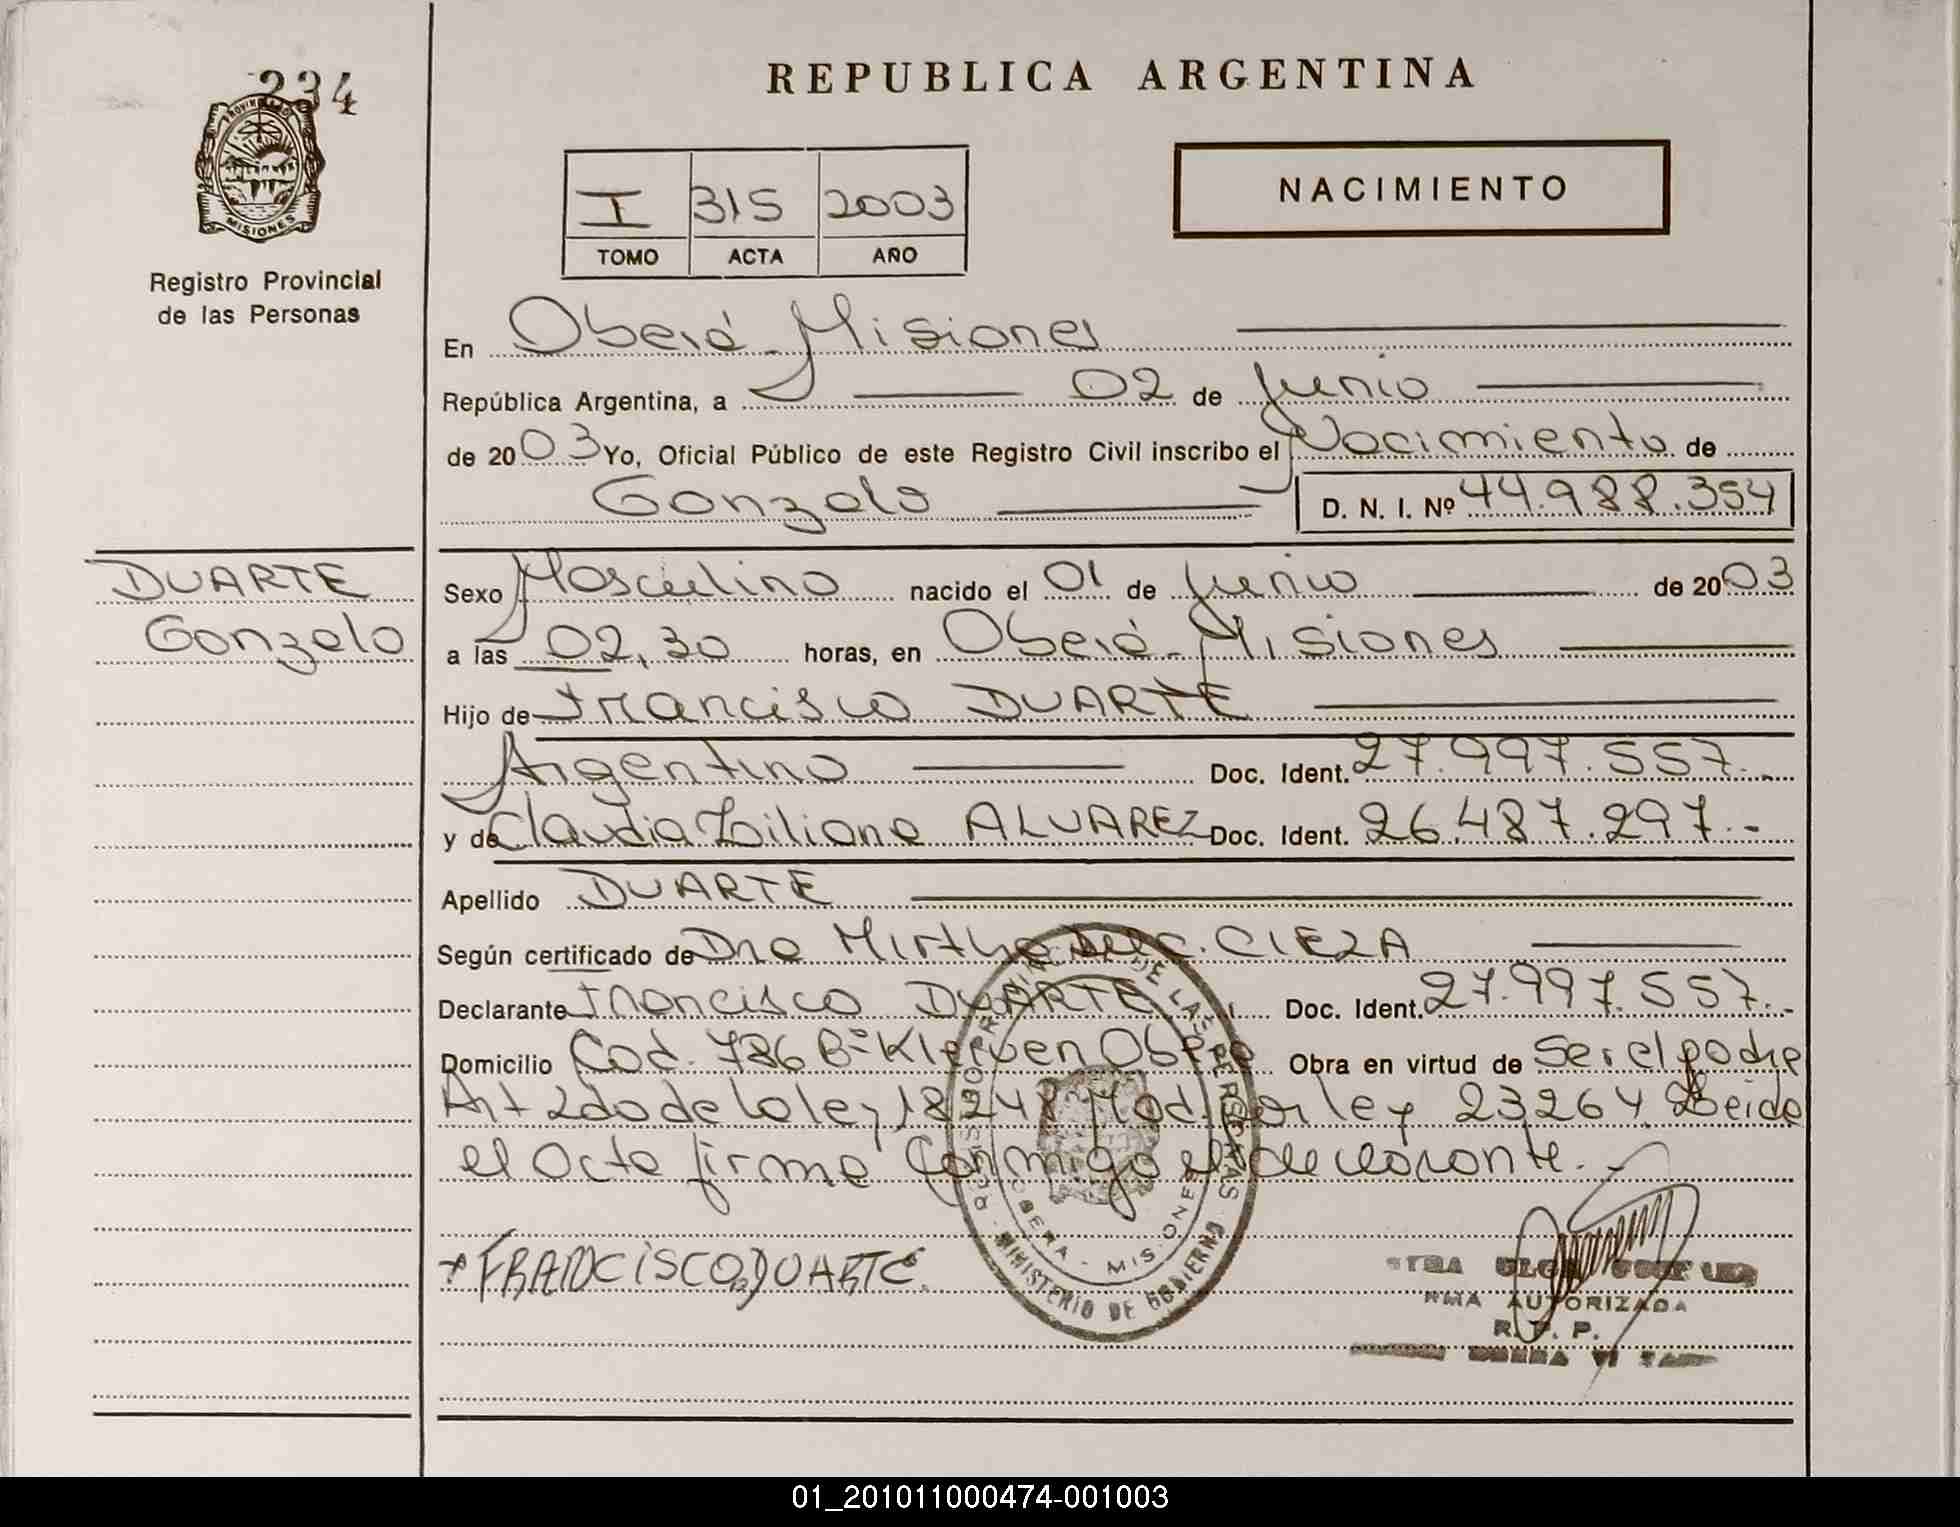 234
PROVINCIA DE
MISIONES
Registro Provincial
de las Personas
REPUBLICA ARGENTINA
I 315 2003
TOMO ACTA AÑO
NACIMIENTO
En Oberá - Misiones
República Argentina, a 02 de Junio
de 2003 Yo, Oficial Público de este Registro Civil inscribo el Nacimiento de
Gonzalo D. N. I. Nº 44.988.354
DUARTE
Gonzalo
Sexo Masculino nacido el 01 de Junio de 2003
a las 02,30 horas, en Oberá - Misiones
Hijo de Francisco DUARTE
Argentino Doc. Ident. 27.997.557.-
y de Claudia Liliana ALVAREZ Doc. Ident. 26.487.297.-
Apellido DUARTE
Según certificado de Dra Mirtha del C. CIEZA
Declarante Francisco DUARTE Doc. Ident. 27.997.557.-
Domicilio Cod. 786 Bº Oberá Obra en virtud de Ser el padre
Art 2do de la ley 18248 Mod. por ley 23264. Leida
el Acta firma Conmigo el declarante.-
FRANCISCO DUARTE.
REGISTRO PROVINCIAL DE LAS PERSONAS
OBERA - MISIONES
MINISTERIO DE GOBIERNO
AUTORIZADA
R. P. P.
01_201011000474-001003